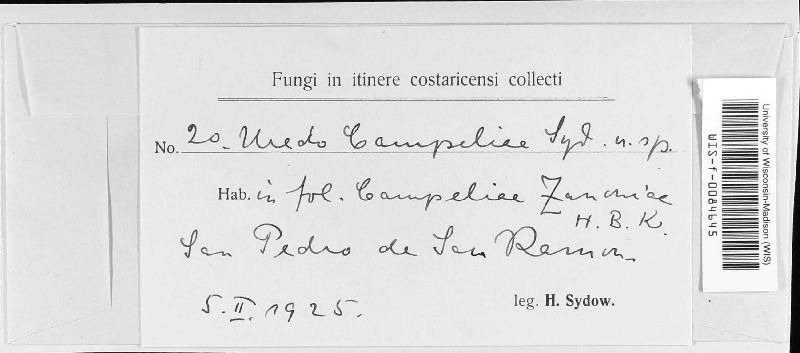 Fungi in itinere costaricensi collecti
No. 20. Uredo Campeliae Syd. n. sp.
Hab. in fol. Campeliae Zanoniae
H. B. K.
San Pedro de San Ramon.
5. II. 1925.
leg. H. Sydow.
University of Wisconsin-Madison (WIS)
WIS-f-0084645